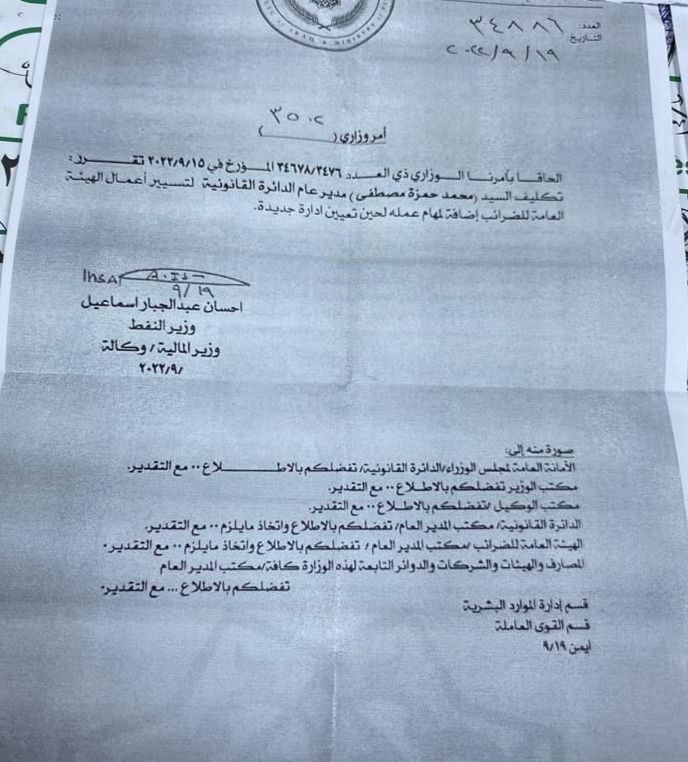 العدد: ٣٤٨٨٦
التاريخ: ٢٠٢٢/٩/١٩
٣٥٠٢
أمر وزاري ( )
الحاقا بأمرنا الوزاري ذي العدد ٣٤٦٧٨/٣٤٧٦ المؤرخ في ٢٠٢٢/٩/١٥ تقرر:
تكليف السيد (محمد حمزة مصطفى) مدير عام الدائرة القانونية لتسيير أعمال الهيئة
العامة للضرائب إضافة لمهام عمله لحين تعيين ادارة جديدة.
Ihsan
٩/١٩
احسان عبدالجبار اسماعيل
وزير النفط
وزير المالية/وكالة
٢٠٢٢/٩/
صورة منه إلى:
الأمانة العامة لمجلس الوزراء/الدائرة القانونية/تفضلكم بالاطــــــلاع ٠٠ مع التقدير.
مكتب الوزير تفضلكم بالاطـلاع ٠٠ مع التقدير.
مكتب الوكيل /تفضلكم بالاطـلاع ٠٠ مع التقدير.
الدائرة القانونية/ مكتب المدير العام/ تفضلكم بالاطلاع واتخاذ مايلزم ٠٠ مع التقدير.
الهيئة العامة للضرائب /مكتب المدير العام / تفضلكم بالاطلاع واتخاذ مايلزم ٠٠ مع التقدير.
المصارف والهيئات والشركات والدوائر التابعة لهذه الوزارة كافة/مكتب المدير العام
تفضلكم بالاطلاع ... مع التقدير.
قسم إدارة الموارد البشرية
قسم القوى العاملة
أيمن ٩/١٩